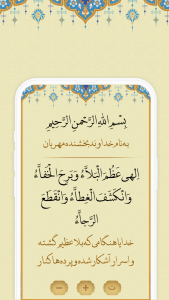 بِسْمِ اللَّهِ الرَّحْمَنِ الرَّحِيمِ
به نام خداوند بخشنده مهربان
إِلٰهِى عَظُمَ الْبَلاءُ وَبَرِحَ الْخَفاءُ
وَانْكَشَفَ الْغِطاءُ وَانْقَطَعَ
الرَّجاءُ
خدایا هنگامی که بلا عظیم گشته
و اسرار آشکار شده و پرده ها کنار